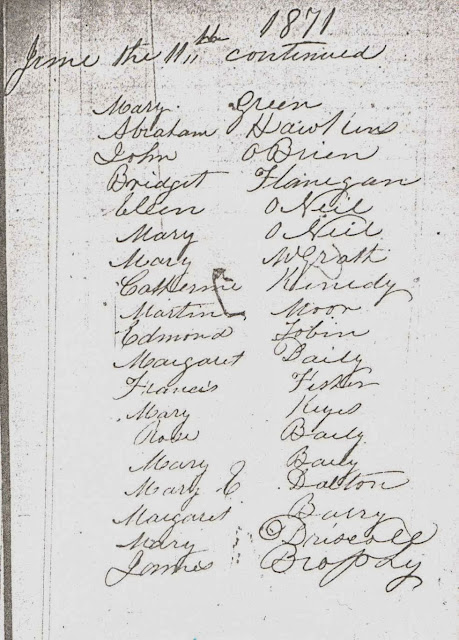 1871
June the 11th continued
Mary Green
Abraham Hawkins
John OBrien
Bridget Flanegan
Ellen ONeil
Mary ONeil
Mary McGrath
Catherine Kenedy
Martin Moor
Edmond Tobin
Margaret Baily
Francis Fisher
Mary Keyes
Rose Baily
Mary Baily
Mary E. Dalton
Margaret Barry
Mary Driscoll
James Brophy